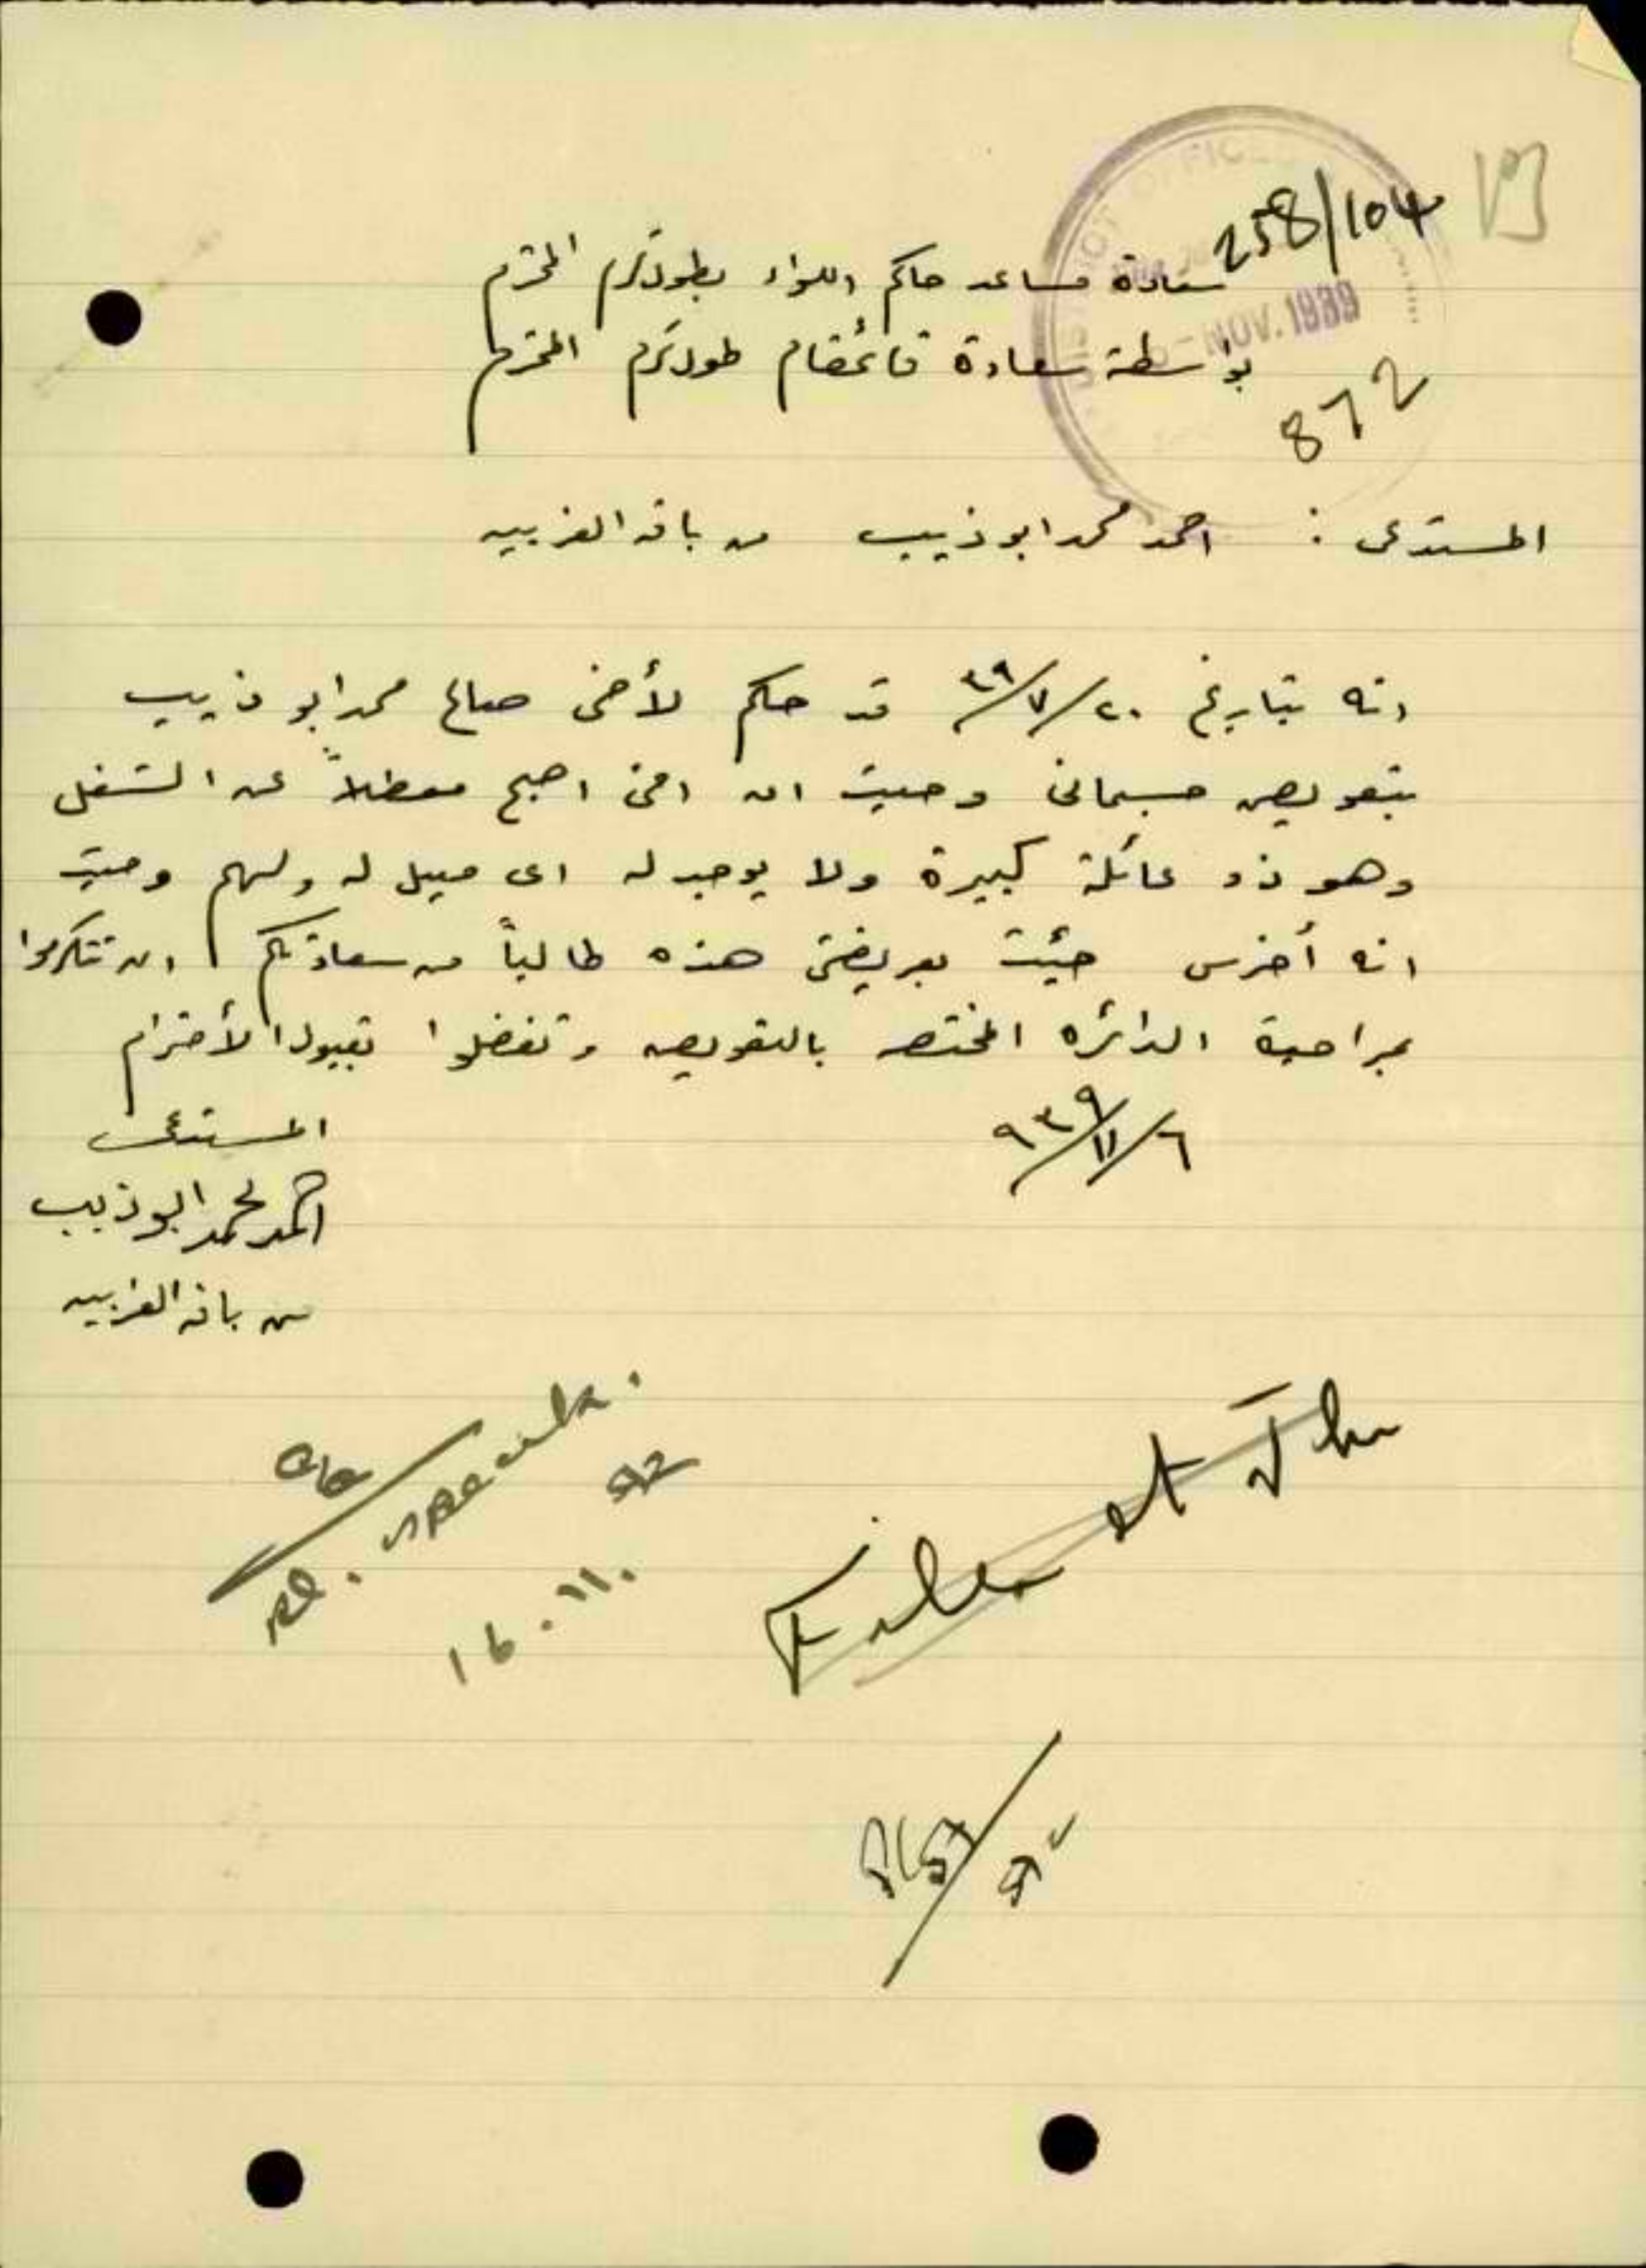 258/104
DISTRICT OFFICER
NOV. 1939
872
سعادة مساعد حاكم اللواء بطولكرم المحترم
بواسطة سعادة قائمقام طولكرم المحترم
المستدعي : احمد محمد ابو ذيب من باقه الغربيه
انه بتاريخ ٢٠/٧/٣٩ قد حكم لأخي صالح محمد ابو ذيب
بتعويض جسماني وحيث ان اخي اصبح معطلاً عن الشغل
وهو ذو عائلة كبيرة ولا يوجد له اي معيل له ولهم وحيث
انه أخرس جئت بعريضتي هذه طالباً من سعادتكم ان تتكرموا
بمراجعة الدائره المختصه بالتعويض وتفضلوا بقبول الأحترام
٦/١١/٩٣٩
المستدعي
احمد محمد ابو ذيب
من باقه الغربيه
16.11.